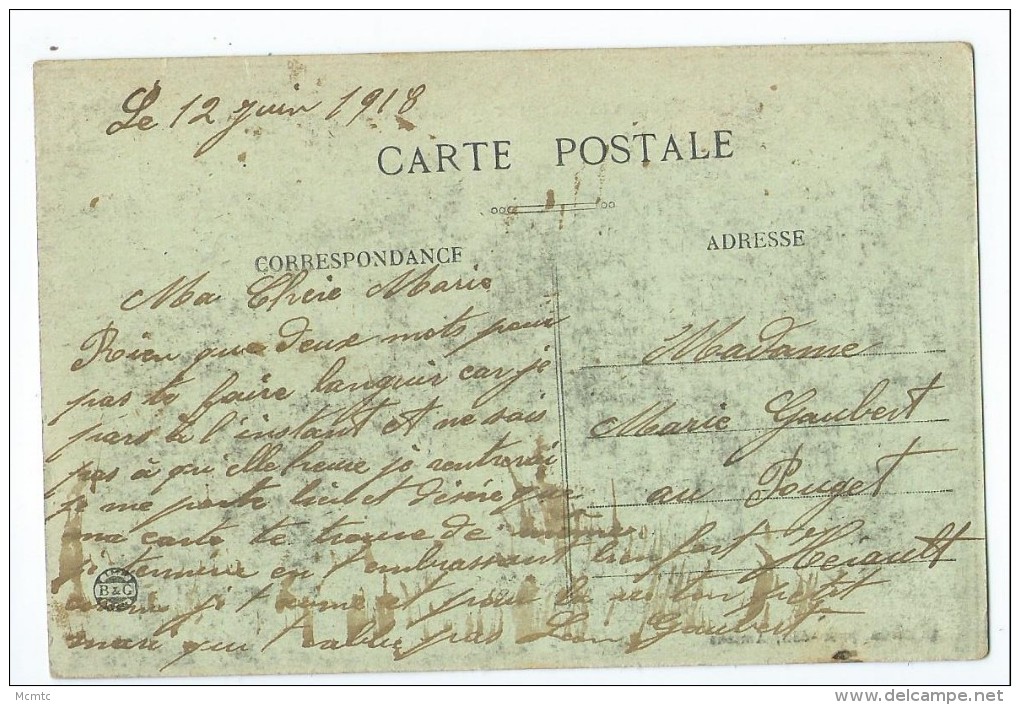 Le 12 Juin 1918
CARTE POSTALE
CORRESPONDANCE
ADRESSE
Ma Cheie Marie
Rien que deux mots pour
pas te faire languir car je
pars à l'instant et ne sais
pas à qu'elle heure je rentrerai
je me porte bien et désire que
ma carte te trouve de même
je termine en t'embrassant bien fort
comme je t'aime et pour la vie ton petit
mari qui t'oublie pas Léon Gaubert
Madame
Marie Gaubert
au Pouget
Herault
B & G
Mcmtc
www.delcampe.net